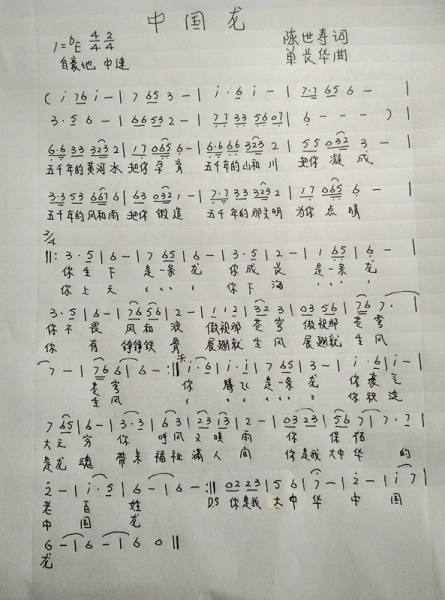 中国龙
1=♭E 4/4 2/4 陈世寿词
自豪地 中速 单长华曲
( i 7 6 i - | 7 65 3 - | i · 6 i - | 7·7 65 6 - |
3 · 5 6 - | 66 53 2 - | 77 33 56 07 | 6 - - - ) |
6·6 33 323 2 | 17 065 6 - | 6·6 66 323 2 | 55 032 3 - |
五千年的黄河水 把你孕育 五千年的山和川 把你凝成
3·3 53 667 6 | 63 032 1 - | 7·7 33 323 2 | 17 065 6 - |
五千年的风和雨 把你锻造 五千年的那文明 为你点睛
2/4
||: 3 · 5 | 6 - | 7 65 | 6 - | 3 · 5 | 2 - | 1 65 | 6 - |
你生下 是一条龙 你成长 是一条龙
你上天 你下海
3 · 5 | 6 - | 765 6 | 2 - | 112 | 32 3 | 03 56 | 76 7 · |
你不畏 风和浪 傲视那 苍穹 傲视那 苍穹
你有 铮铮铁骨 展翅就 生风 展翅就 生风
7 - | 766 | 6 - :|| i · 6 | i - | 7 65 | 3 - | i · 6 | i - |
苍穹 你腾飞 是一条龙
生风
7 65 | 6 - | 3·3 | 63 | 23 13 | 2 - | 03 23 | 56 7 | 7 · 7 |
大无穷 你呼风又唤雨 你保佑
是龙魂 带来福祉满人间 你是我大中华的
2 - | i · 5 | 6 - | 6 - :|| 02 23 | 5 6 | 7 - | 2 - | i 7 |
老百姓 D.S 你是我大中华中国
中国龙
6 - | 6 - | 6 0 ||
龙